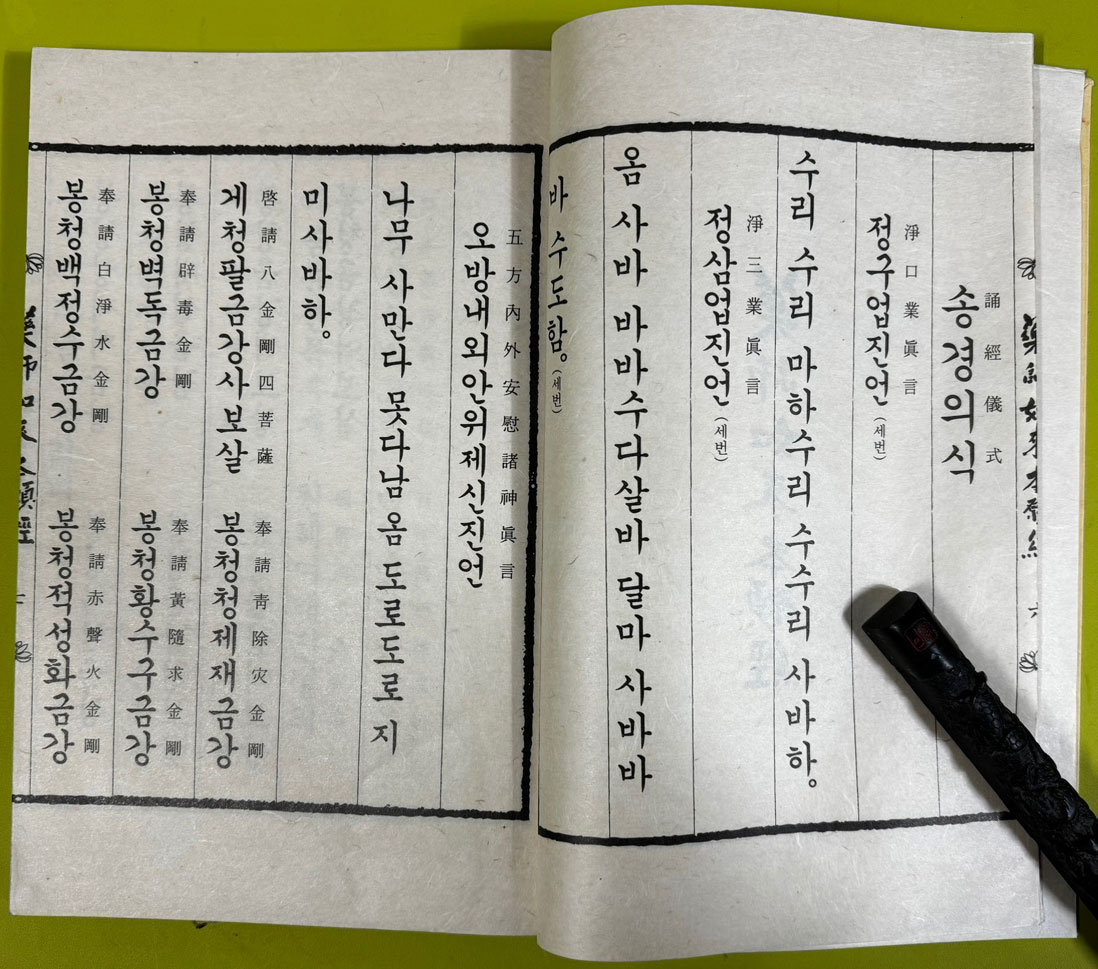 誦經儀式
송경의식
淨口業眞言
정구업진언 (세번)
수리 수리 마하수리 수수리 사바하。
淨三業眞言
정삼업진언 (세번)
옴 사바 바바수다살바 달마 사바바
바 수도함。 (세번)
五方內外安慰諸神眞言
오방내외안위제신진언
나무 사만다 못다남 옴 도로도로 지
미사바하。
啓請八金剛四菩薩
게청팔금강사보살
奉請靑除灾金剛
봉청청제재금강
奉請辟毒金剛
봉청벽독금강
奉請黃隨求金剛
봉청황수구금강
奉請白淨水金剛
봉청백정수금강
奉請赤聲火金剛
봉청적성화금강